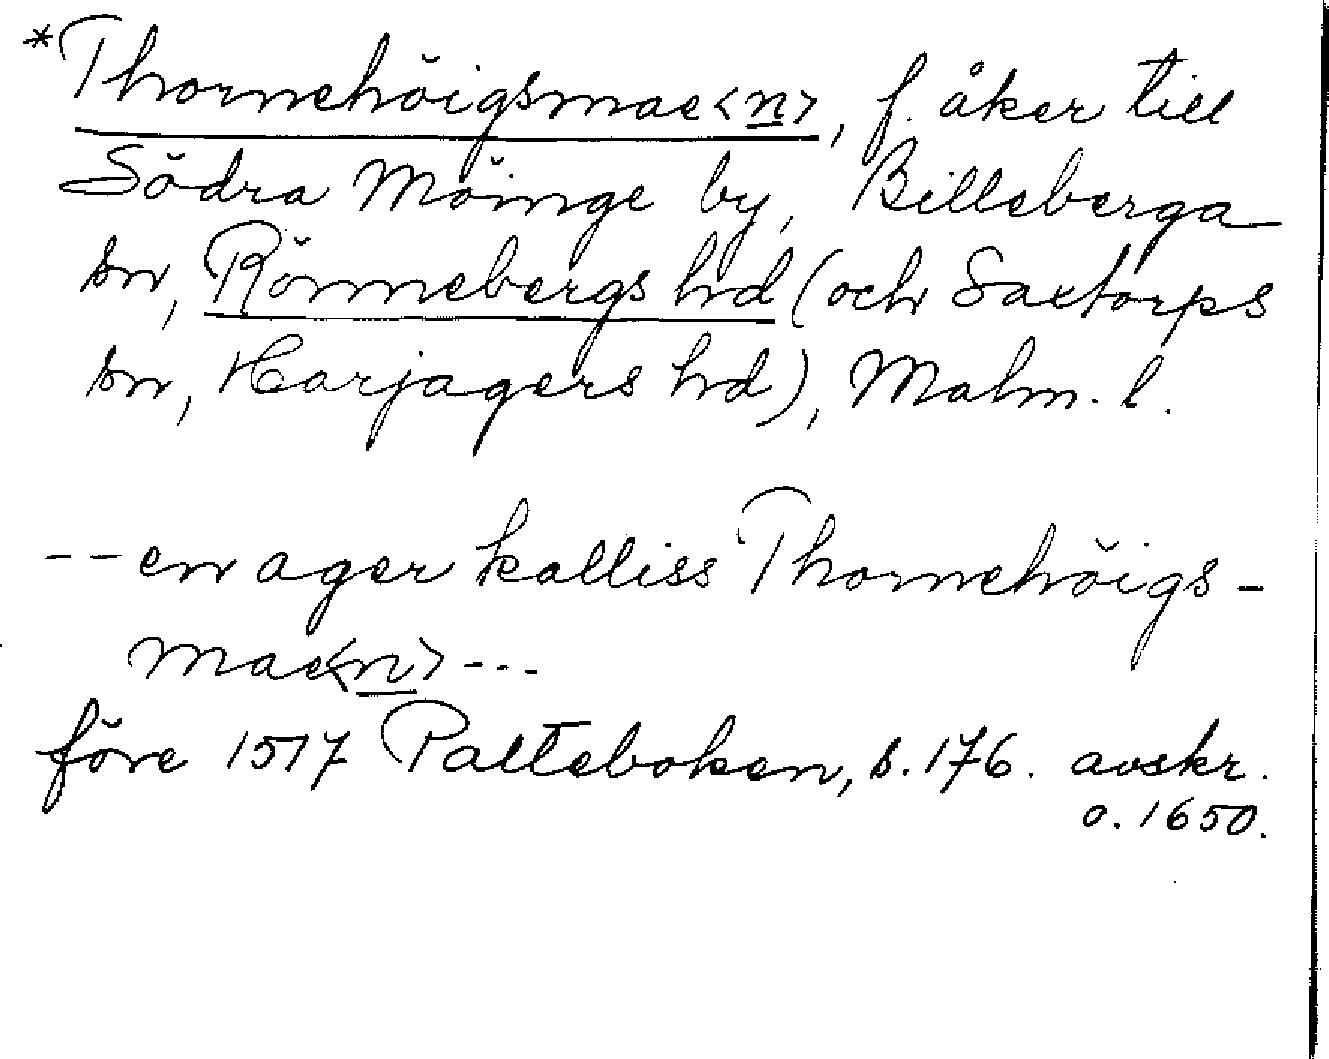 *Thornehöigsmae<n>, f. åker till
Södra Möinge by, Billeberga
sn, Rönnebergs hd (och Saxtorps
sn, Harjagers hd), Malm. l.
-- en ager kalliss Thornehöigs-
mae<n> ---
före 1517 Palteboken, s. 176. avskr.
o. 1650.